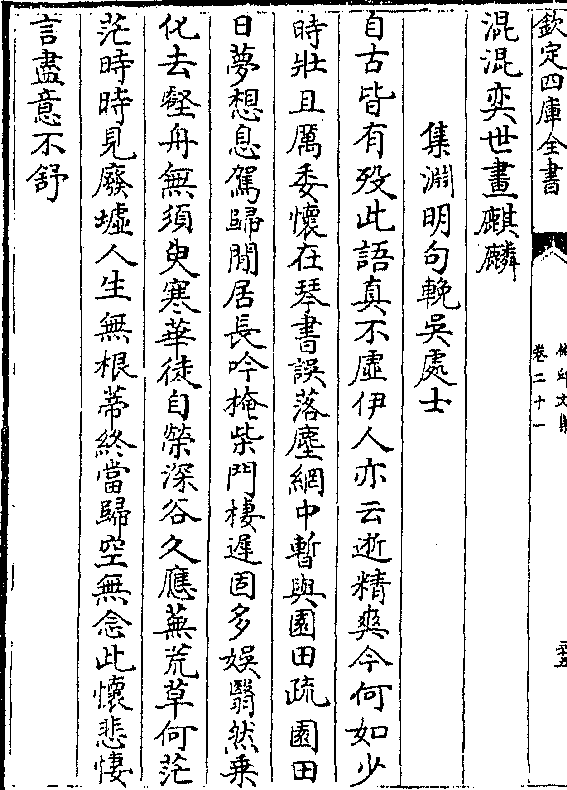 欽定四庫全書
卷二十一
混混奕世畫麒麟
集淵明句輓吳處士
自古皆有歿此語真不虛伊人亦云逝精爽今何如少
時壯且厲委懷在琴書誤落塵網中暫與園田疏園田
日夢想息駕歸閒居長吟掩柴門棲遲固多娛翳然乗
化去壑舟無須臾寒華徒自榮深谷久應蕪荒草何茫
茫時時見廢墟人生無根蒂終當歸空無念此懷悲悽
言盡意不舒